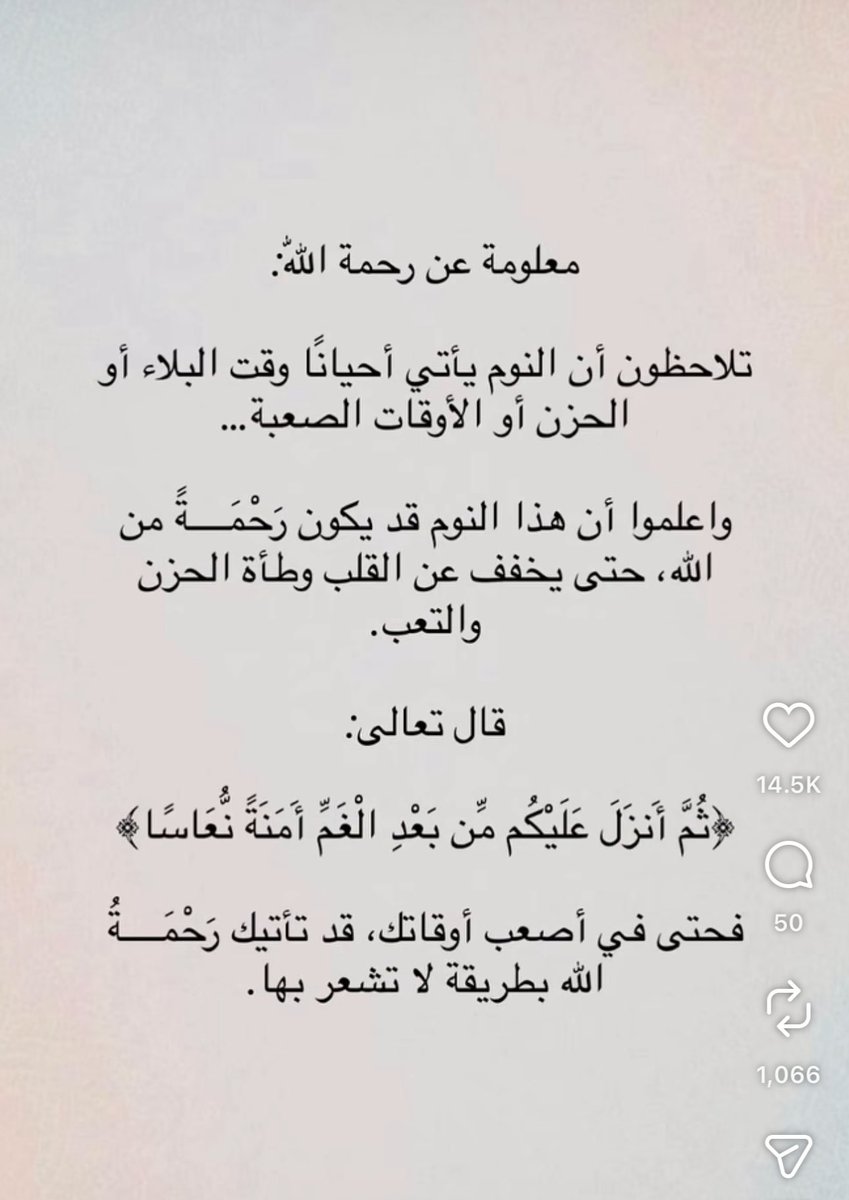 معلومة عن رحمة اللّٰه:
تلاحظون أن النوم يأتي أحيانًا وقت البلاء أو
الحزن أو الأوقات الصعبة...
واعلموا أن هذا النوم قد يكون رَحْمَـــةً من
الله، حتى يخفف عن القلب وطأة الحزن
والتعب.
قال تعالى:
﴿ثُمَّ أَنزَلَ عَلَيْكُم مِّن بَعْدِ الْغَمِّ أَمَنَةً نُّعَاسًا﴾
فحتى في أصعب أوقاتك، قد تأتيك رَحْمَـــةُ
الله بطريقة لا تشعر بها.
14.5K
50
1,066